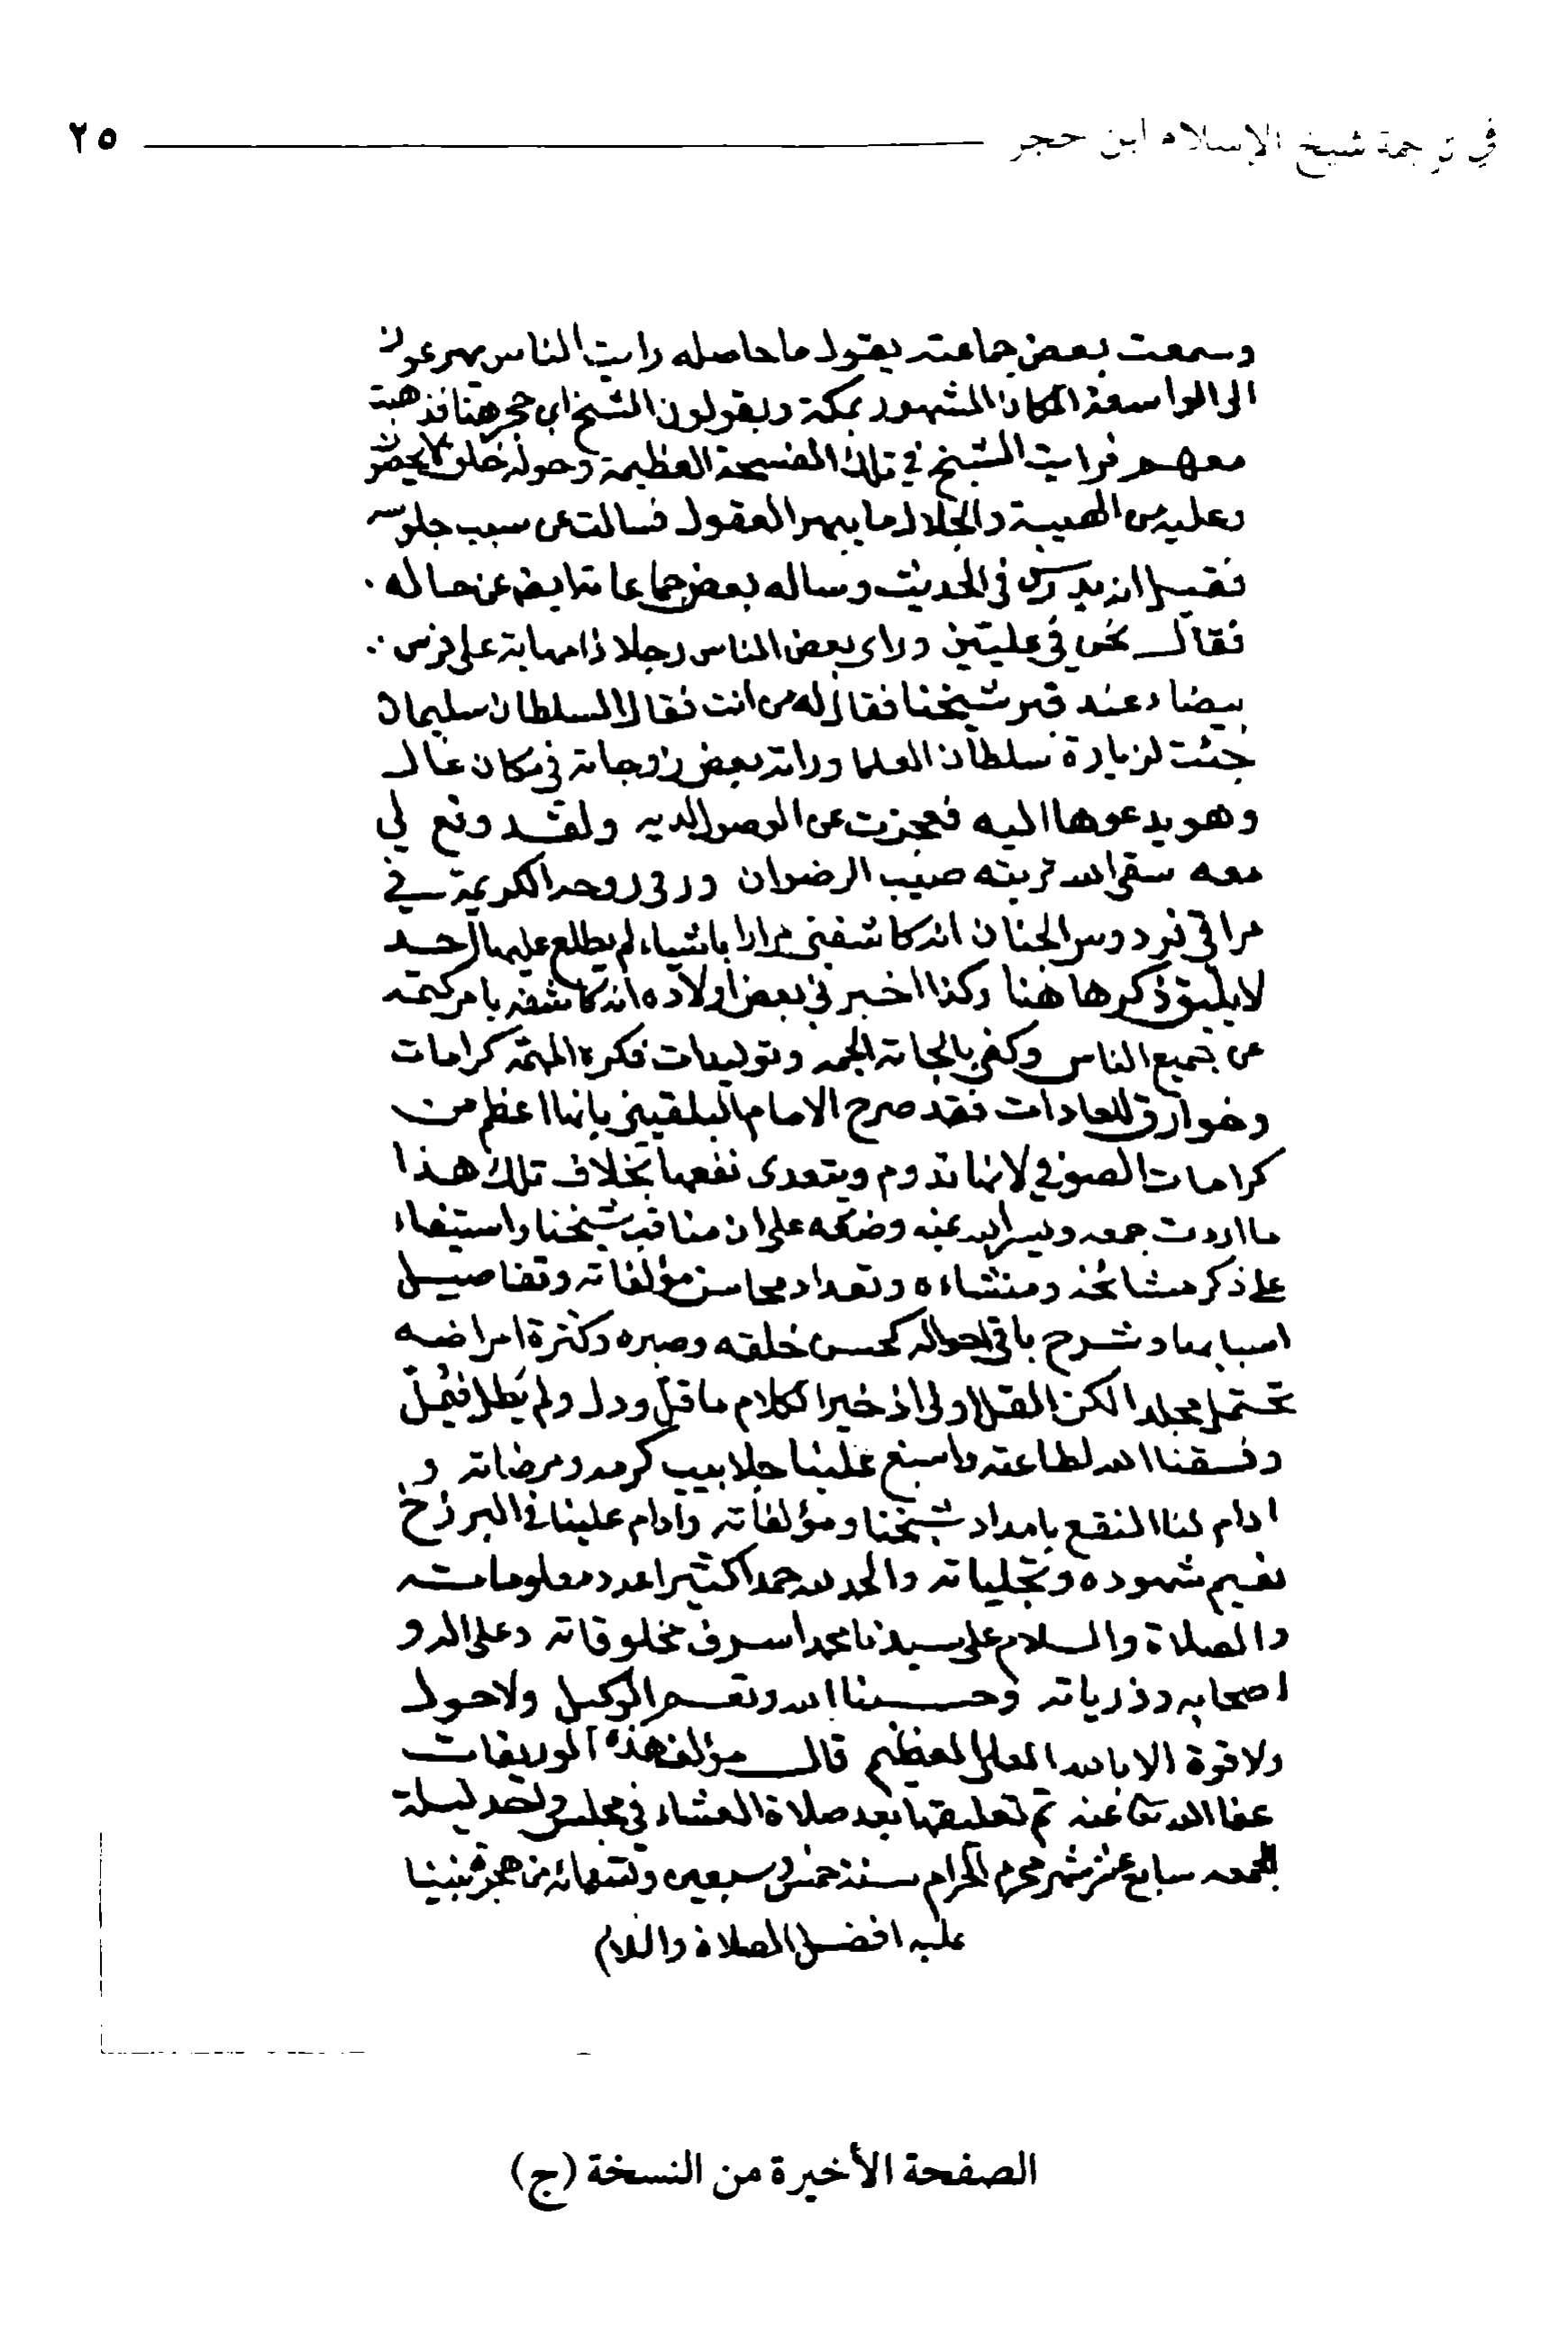 في ترجمة شيخ الإسلام ابن حجر ٢٥
وسمعت بعض جماعته يقول ما حاصله رايت الناس يهرعون
الى الواسعة المكان المشهور بمكة ويقولون الشيخ ابن حجر هنا فذهبت
معهم فرايت الشيخ في تلك الفسيحة العظيمة وحوله خلق لا يحصر
وعليه من الهيبة والجلال ما يبهر العقول فسالت عن سبب جلوسه
فقيل انه يدرس في الحديث وساله بعض جماعاته ايضا عن حاله
فقال نحن في عليتين وراى بعض الناس رجلا ذا مهابة على فرس
بيضاء عند قبر شيخنا فقال له من انت فقال السلطان سليمان
جئت لزيارة سلطان العلما وراته بعض زوجاته في مكان عال
وهو يدعوها اليه فعجزت عن الوصول اليه ولقد وقع لي
معه سقى الله تربته صيب الرضوان ورقى روحه الكريمة في
مراقي فردوس الجنان انه كاشفني مرارا باشياء لم يطلع عليها احد
لا يليق ذكرها هنا وكذا اخبرني بعض اولاده انه كاشفه بامر كتمه
عن جميع الناس وكفى بابحاثه الجمه وتوليدات فكره المهمة كرامات
وخوارق للعادات فقد صرح الامام البلقيني بانها اعظم من
كرامات الصوفي لانها تدوم ويتعدى نفعها بخلاف تلك هذا
ما اردت جمعه ويسر الله بمنه وضعه على ان مناقب شيخنا واستيفاء
على ذكر مشائخه ومنشاءه وتعداد محاسن مؤلفاته وتفاصيل
اسبابها وشرح باقي احواله كحسن خلقه وصبره وكثرة امراضه
تحتمل مجلدا لكن القل اولى اذ خير الكلام ما قل ودل ولم يطل فيمل
وفقنا الله لطاعته واسبغ علينا جلابيب كرمه ومرضاته و
ادام لنا النفع بامداد شيخنا ومؤلفاته وادام علينا في البرزخ
نعيم شهوده وتجلياته والحمد لله حمدا كثيرا عدد معلوماته
والصلاة والسلام على سيدنا محمد اشرف مخلوقاته وعلى اله و
اصحابه وذرياته وحسبنا الله ونعم الوكيل ولا حول
ولا قوة الا بالله العلي العظيم قال مؤلف هذه الوريقات
عفا الله تعا عنه تم تعليقها بعد صلاة العشاء في مجلس واحد ليلة
الجمعه سابع عشر شهر محرم الحرام سنة خمس وسبعين وتسعمائة من هجرة نبينا
عليه افضل الصلاة والسلام
الصفحة الأخيرة من النسخة (ج)